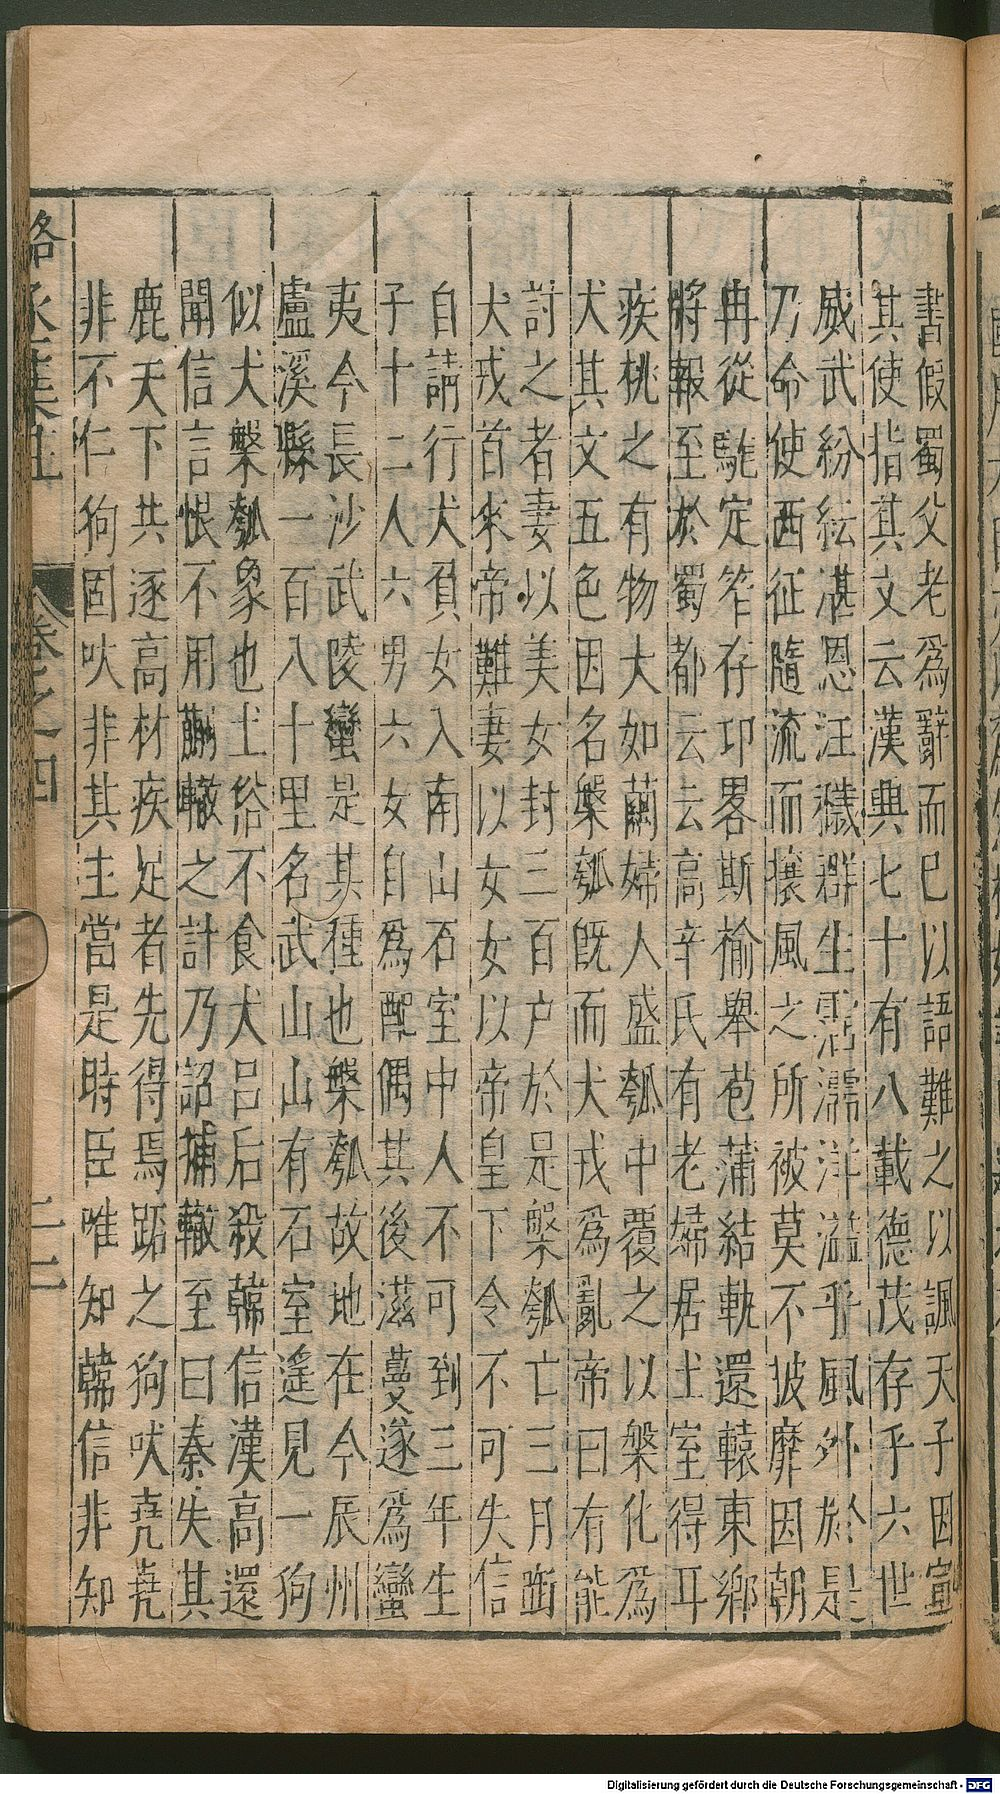 書假蜀父老爲辭而巳以語難之以諷天子因宣
其使指其文云漢興七十有八載德茂存乎六世
威武紛紜湛恩汪穢群生霑濡洋溢乎風外於是
乃命使西征隨流而壤風之所被莫不披靡因朝
冉從駹定筰存卭畧斯榆舉苞蒲結軌還轅東鄉
將報至於蜀都云去高辛氏有老婦居土室得耳
疾桃之有物大如繭婦人盛瓠中覆之以槃化爲
犬其文五色因名槃瓠旣而犬戎爲亂帝曰有能
討之者妻以美女封三百户於是槃瓠亡三月銜
犬戎首來帝難妻以女女以帝皇下令不可失信
自請行犬負女入南山石室中人不可到三年生
子十二人六男六女自爲配偶其後滋蔓遂爲蠻
夷今長沙武陵蠻是其種也槃瓠故地在今辰州
盧溪縣一百入十里名武山山有石室遙見一狗
似犬槃瓠象也土俗不食犬吕后殺韓信漢高還
聞信言恨不用蒯轍之計乃詔捕轍至曰秦失其
鹿天下共逐高材疾足者先得焉跖之狗吠堯堯
非不仁狗固吠非其主當是時臣唯知韓信非知
卷之四 二二
Digitalisierung gefördert durch die Deutsche Forschungsgemeinschaft - DFG